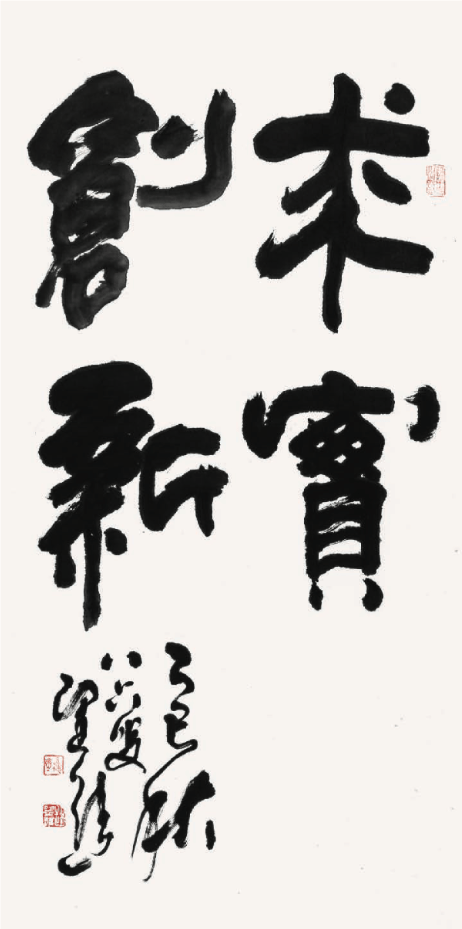 求實
創新
乙巳秋
八六叟
望